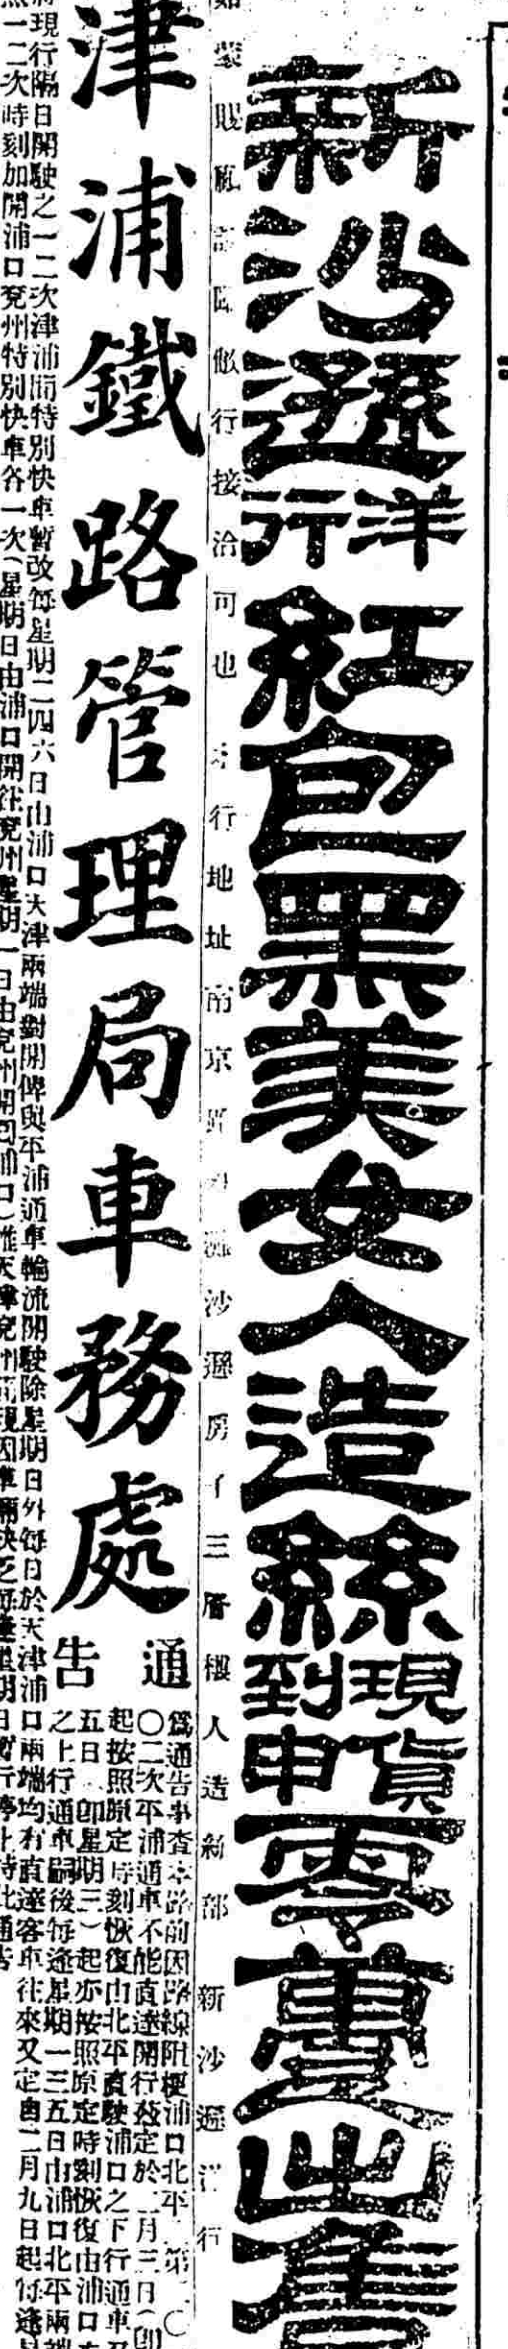 新沙遜洋行紅包黑美女人造絲現貨到申零躉出售
如蒙賜顧請向敝行接洽可也 行地址南京路外灘沙遜房子三層樓人造新部 新沙遜洋行
津浦鐵路管理局車務處通告
為通告事查本路前因路線阻梗浦口北平 第 〇
〇二次平浦通車不能直達開行茲定於二月三日(卽
起按照原定時刻恢復由北平直駛浦口之下行通車又
五日(卽星期三)起亦按照原定時刻恢復由浦口
之上行通車嗣後每逢星期一三五日由浦口北平兩端
現行隔日開駛之一二次津浦間特別快車暫改每星期二四六日由浦口天津兩端對開俾與平浦通車輪流開駛除星期日外每日於天津浦口兩端均有直達客車往來又定自二月九日起每逢
照一二次時刻加開浦口兗州特別快車各一次(星期日由浦口開往兗州星期一日由兗州開回浦口)惟天津兗州間現因車輛缺乏每逢星期日暫行停止特此通告